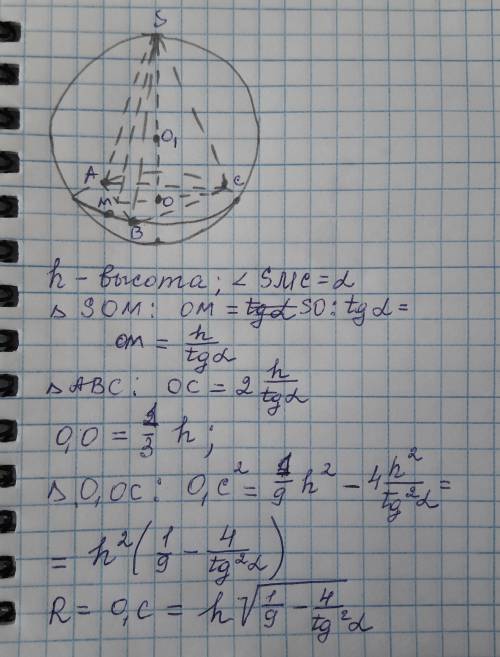 S
O₁
A
C
M
O
B
h - высота; ∠ SMC = α
Δ SOM: OM = SO : tg α =
OM = h/tgα
Δ ABC: OC = 2 h/tgα
O₁O = 1/3 h;
Δ O₁OC: O₁C² = 1/9 h² - 4 h²/tg²α =
= h² (1/9 - 4/tg²α)
R = O₁C = h √(1/9 - 4/tg²α)